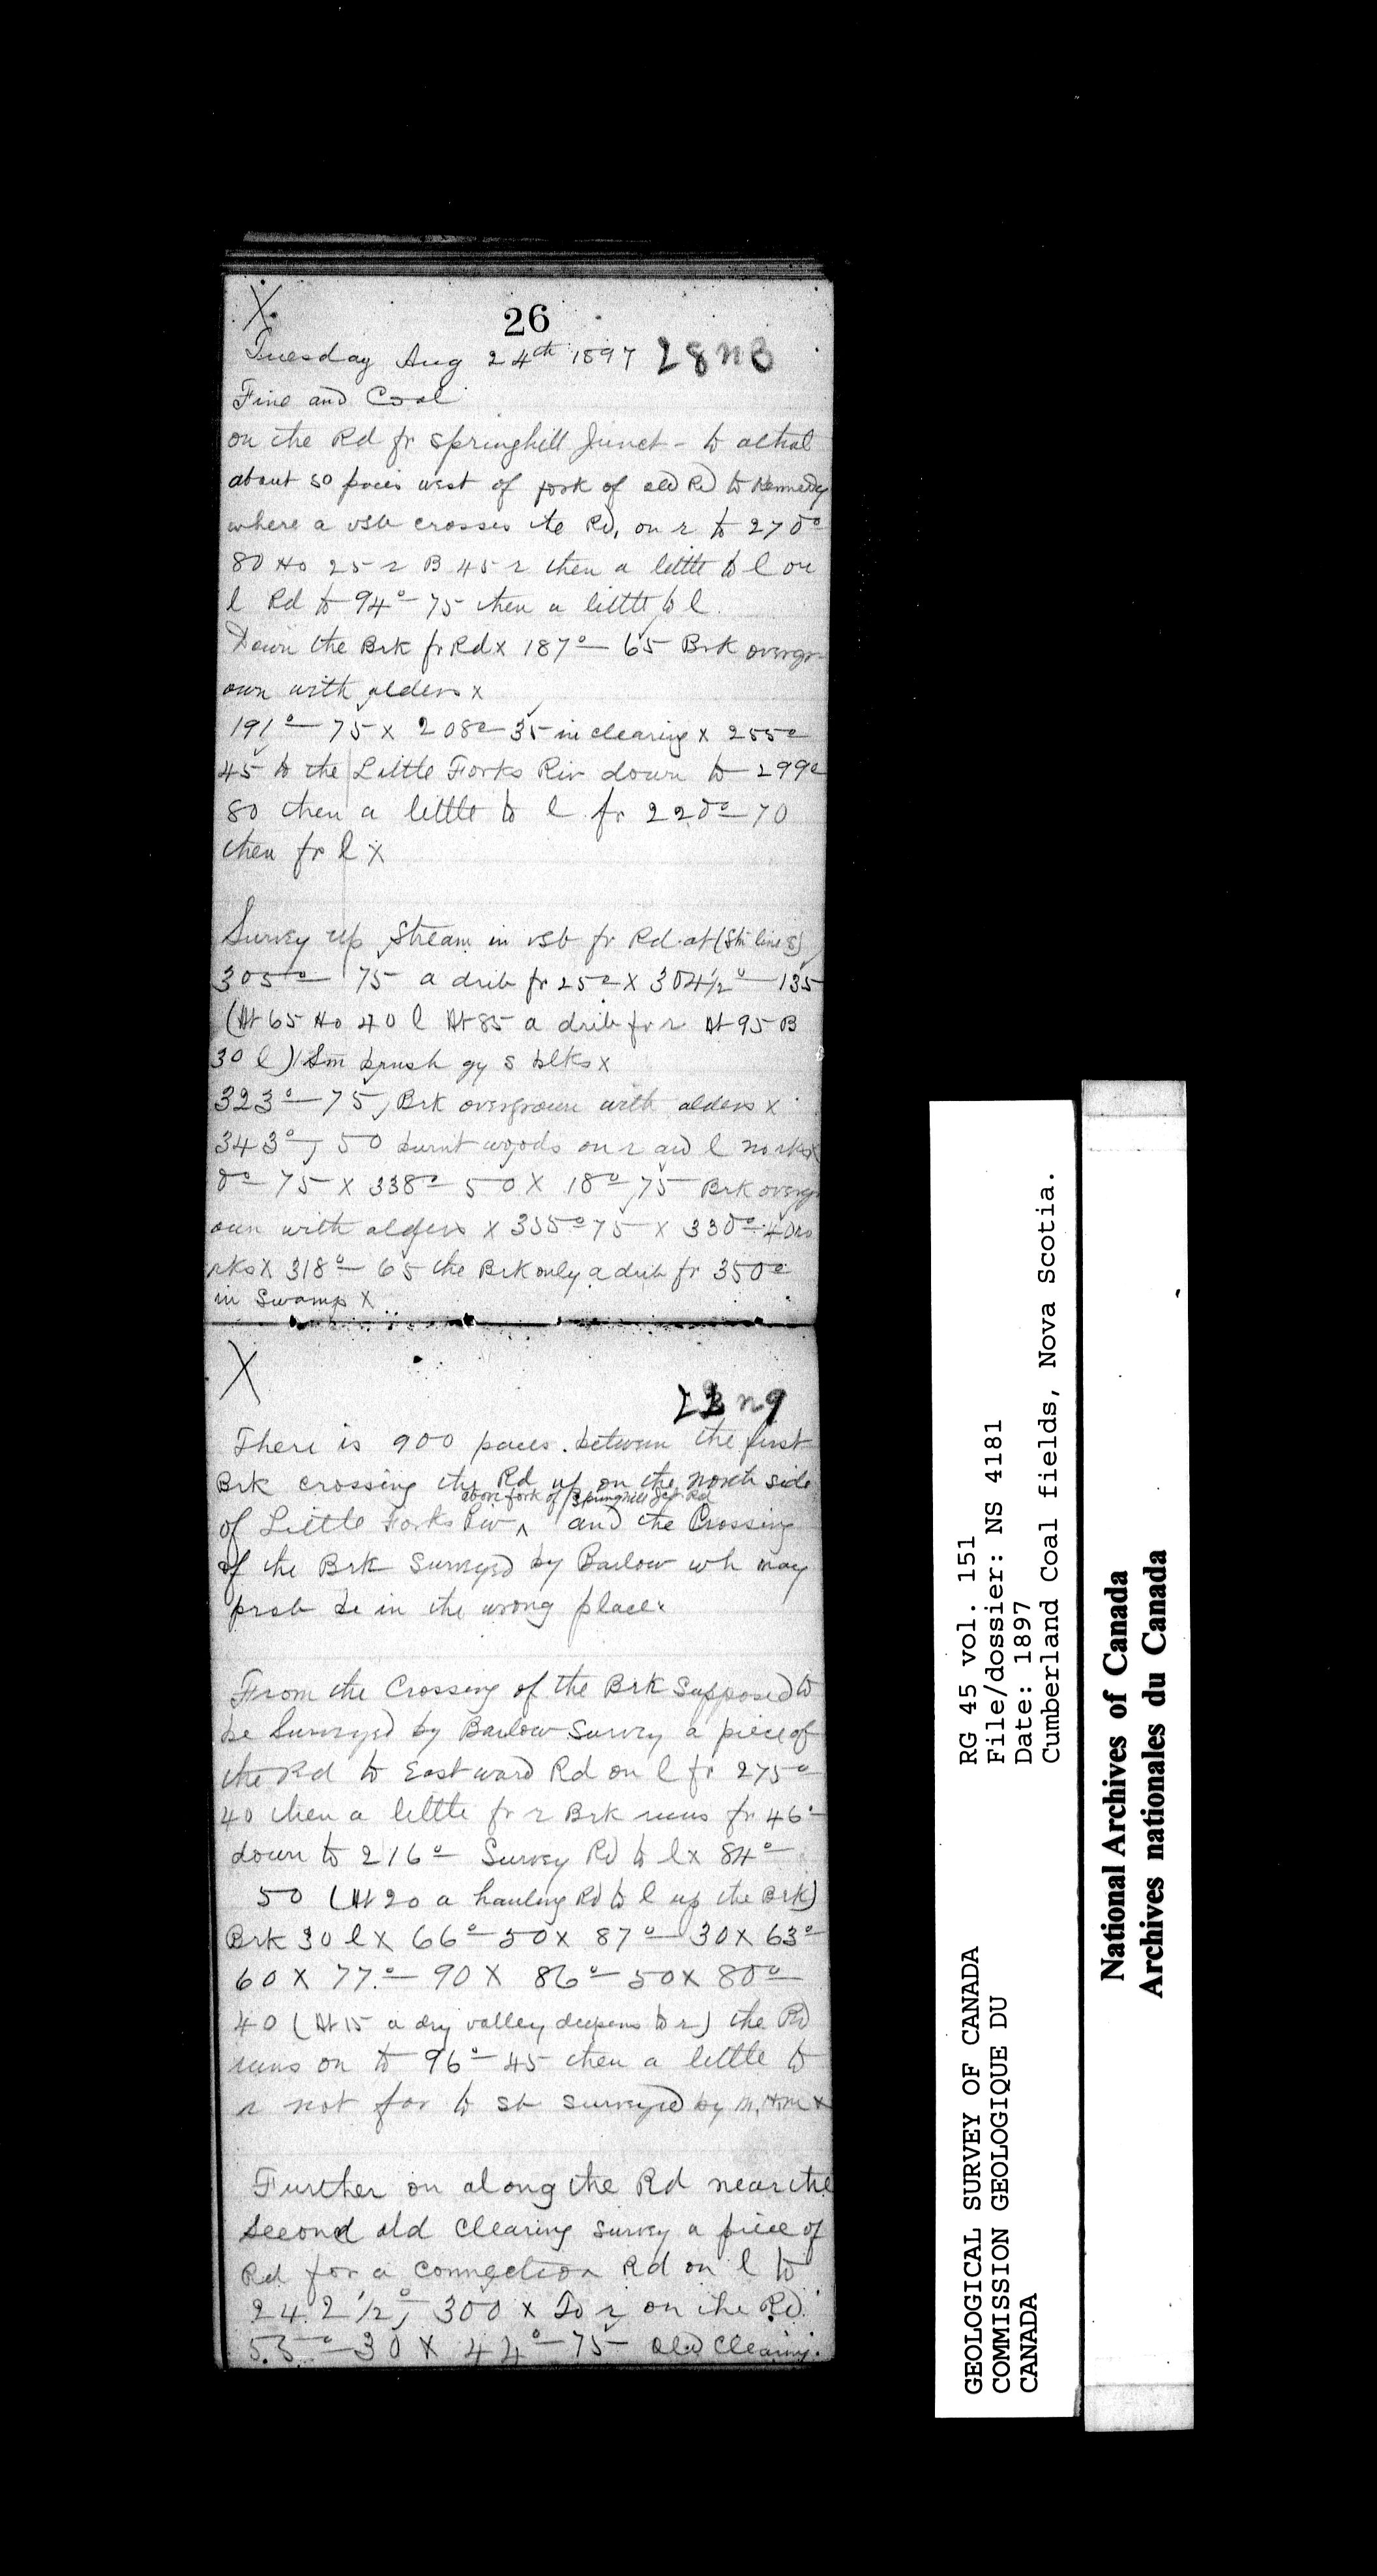 X.
26
Tuesday Aug 24th 1897 L8nB
Fine and Cool
on the Rd fr Springhill Junct - to
about 50 paces west of fork of old Rd to Kennedy
where a vsb crosses the Rd, on r to 270°
80 Ho 25 r B 45 r then a little to l on
l Rd to 94° 75 then a little to l.
Down the Brk fr Rd x 187° 65 Brk overgr-
own with alders x
191° 75 x 208° 35 in clearing x 255°
45 to the Little Forks Riv down to 299°
80 then a little to l fr 220° 70
then fr l x
Survey up stream in vsb fr Rd at (Str line S)
305° 75 a drib fr 25° x 304 1/2° 135
(At 65 Ho 40 l At 85 a drib fr r At 95 B
30 l) Sm brush gy s blks x
323° 75, Brk overgrown with alders x
343°, 50 burnt woods on r and l no rks x
0° 75 x 338° 50 x 18° 75 Brk overgr
own with alders x 355° 75 x 330° 40 no
rks x 318° 65 the Brk only a drib fr 350°
in Swamp x
X
n9
There is 900 paces between the first
Brk crossing the Rd up on the north side
above fork of Springhill Jct Rd
of Little Forks Riv ^ and the Crossing
of the Brk Surveyed by Barlow wh may
prob be in the wrong place.
From the Crossing of the Brk Supposed to
be Surveyed by Barlow Survey a piece of
the Rd to Eastward Rd on l fr 275°
40 then a little fr r Brk runs fr 46°
down to 216° Survey Rd to l x 84°
50 (At 20 a hauling Rd to l up the Brk)
Brk 30 l x 66° 50 x 87° 30 x 63°
60 x 77° 90 x 86° 50 x 80°
40 (At 15 a dry valley deepens to r) the Rd
runs on to 96° 45 then a little to
r not far to st surveyed by M.H.M x
Further on along the Rd near the
Second old Clearing survey a piece of
Rd for a connection Rd on l to
242 1/2°, 300 x To r on the Rd.
55° 30 x 44° 75 old Clearing.
GEOLOGICAL SURVEY OF CANADA
COMMISSION GEOLOGIQUE DU
CANADA
RG 45 vol. 151
File/dossier: NS 4181
Date: 1897
Cumberland Coal fields, Nova Scotia.
National Archives of Canada
Archives nationales du Canada